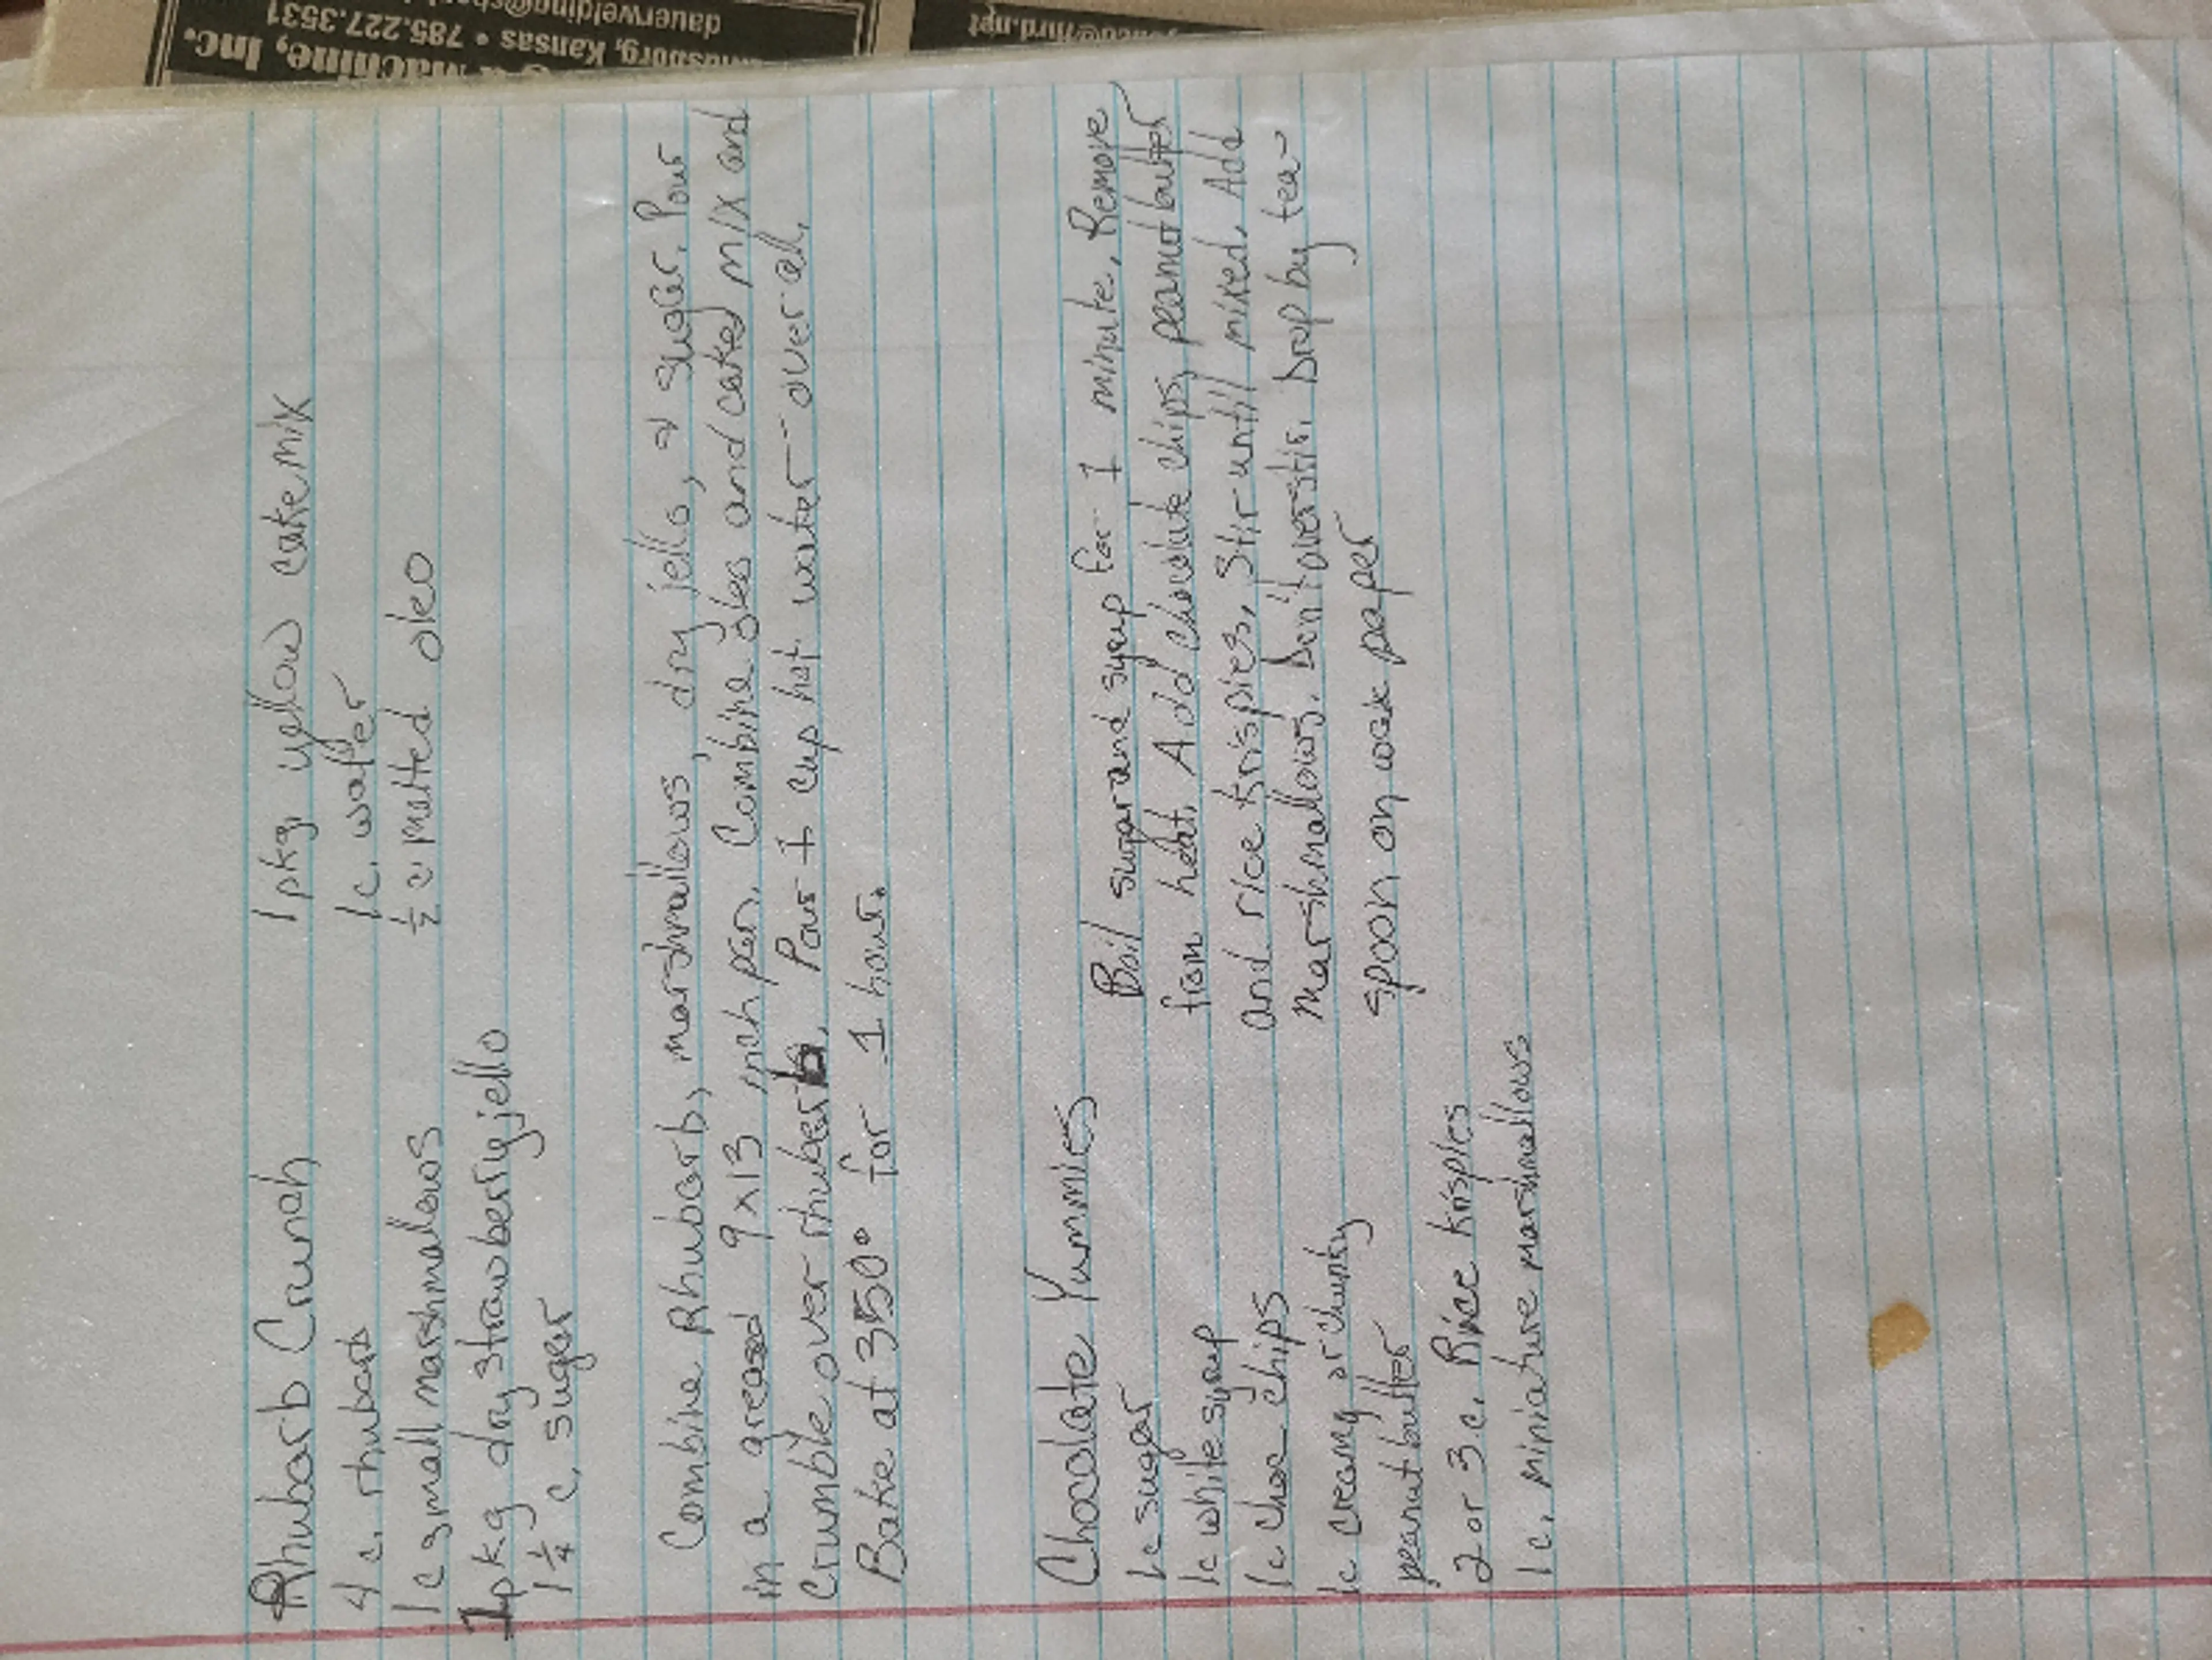 Rhubarb Crunch
4 c. rhubarb
1 c small marshmalows
1 pkg dry strawberry jello
1 1/4 c. suger
1 pkg. yellow cake mix
1 c. water
1/2 c. melted oleo
Combine Rhubarb, marshmallows, dry jello, & suger. Pour
in a greased 9x13 inch pan. Combine oleo and caked mix and
Crumble over rhuberb. Pour 1 cup hot water over all.
Bake at 350° for 1 hour.
Chocolate Yummies
1 c sugar
1 c white syrup
1 c choc chips
1 c creamy or chunky
peanut butter
2 or 3 c. Rice Krisples
1 c. miniature marshmallows
Boil sugar and syrup for 1 minute. Remove
from heat. Add chocolate chips, peanut butter
and rice krispies. Stir untill mixed. Add
marshmallows. Don't overstir. Drop by tea-
spoon on wax paper
Machine, Inc.
Kansas • 785.227.3531